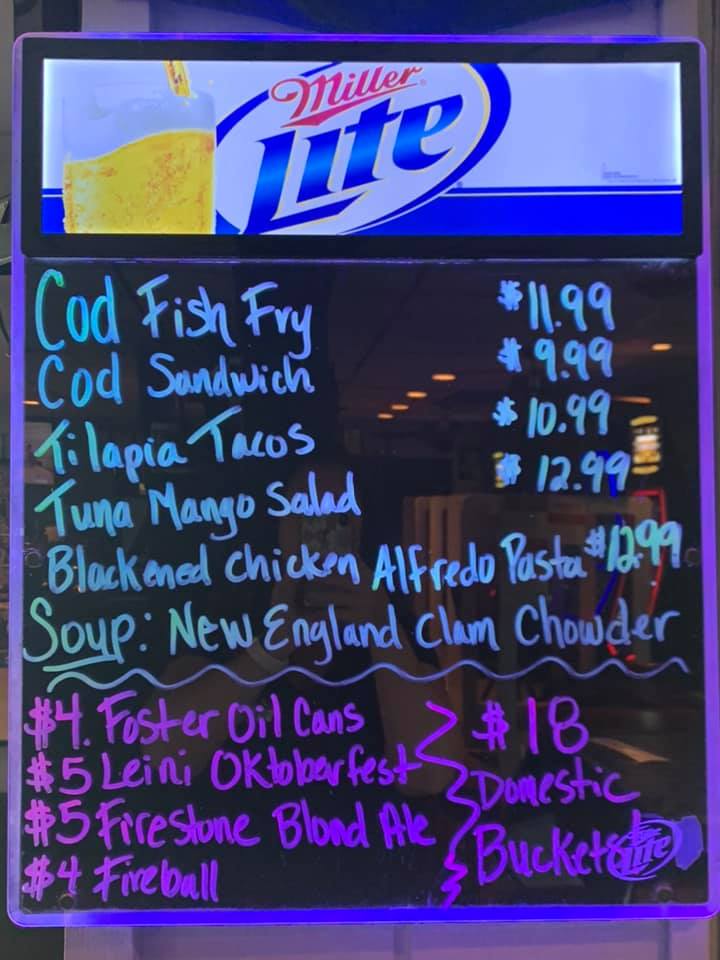 Miller
Lite
Cod Fish Fry $11.99
Cod Sandwich $9.99
Tilapia Tacos $10.99
Tuna Mango Salad $12.99
Blackened Chicken Alfredo Pasta $12.99
Soup: New England Clam Chowder
$4. Foster Oil Cans
$5 Leini Oktoberfest
$5 Firestone Blond Ale
$4 Fireball
$18
Domestic
Buckets!
Lite